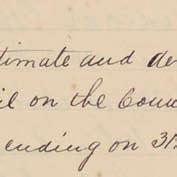 timate and de
il on the Coun
ending on 31